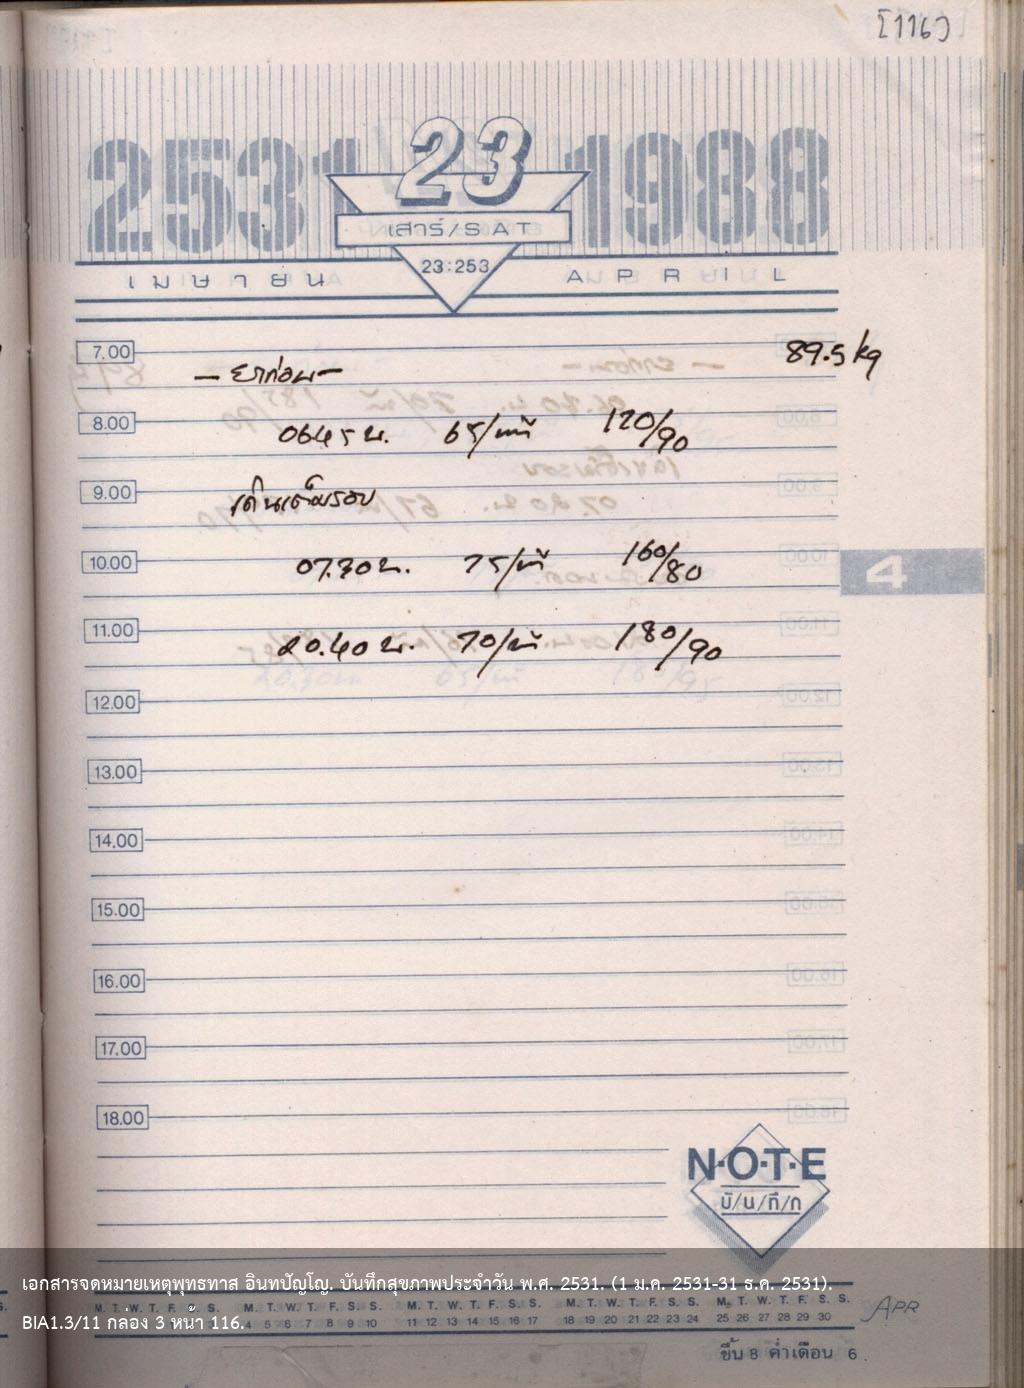 [116]
2531 23 1988
เสาร์/SAT
23:253
เมษายน APRIL
7.00 89.5 kg
— ยาก่อน —
8.00 0645 น. 65/นาที 120/90
9.00 เดินเต็มรอบ
10.00 07.30 น. 75/นาที 160/80
4
11.00 20.40 น. 70/นาที 180/90
12.00
13.00
14.00
15.00
16.00
17.00
18.00
N·O·T·E
บั/น/ทึ/ก
เอกสารจดหมายเหตุพุทธทาส อินทปัญโญ. บันทึกสุขภาพประจำวัน พ.ศ. 2531. (1 ม.ค. 2531-31 ธ.ค. 2531).
M. T. W. T. F. S. S. M. T. W. T. F. S. S. M. T. W. T. F. S. S. M. T. W. T. F. S. S. M. T. W. T. F. S. S. APR
BIA1.3/11 กล่อง 3 หน้า 116. 4 5 6 7 8 9 10 11 12 13 14 15 16 17 18 19 20 21 22 23 24 25 26 27 28 29 30
ขึ้น 8 ค่ำเดือน 6